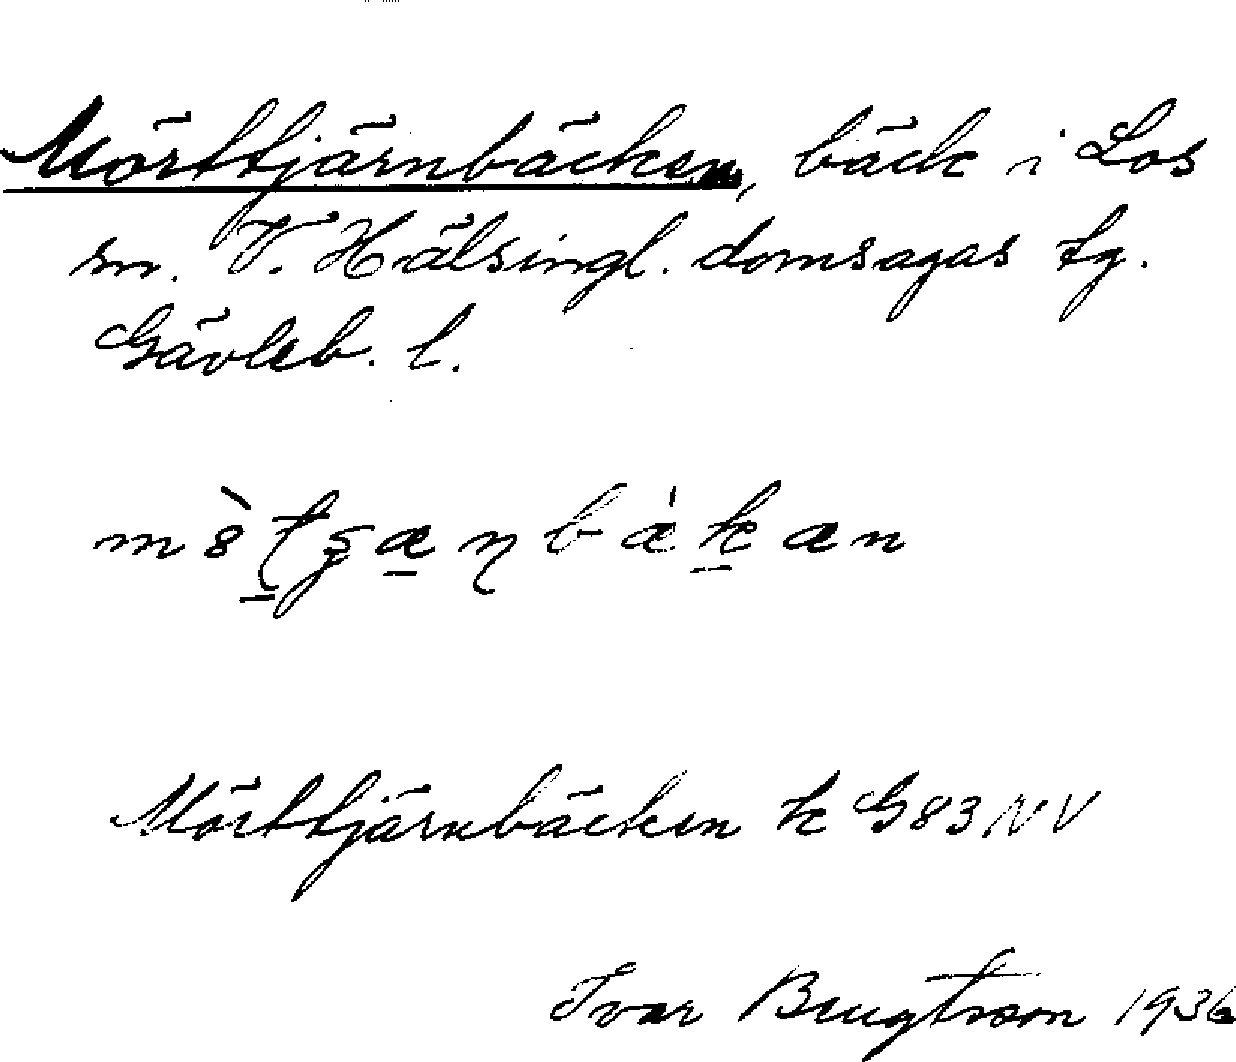 Mörttjärnbäcken, bäck i Los
sn. V. Hälsingl. domsagas tg.
Gävleb. l.
Mörttjärnbäcken k G83NV
Ivar 1936